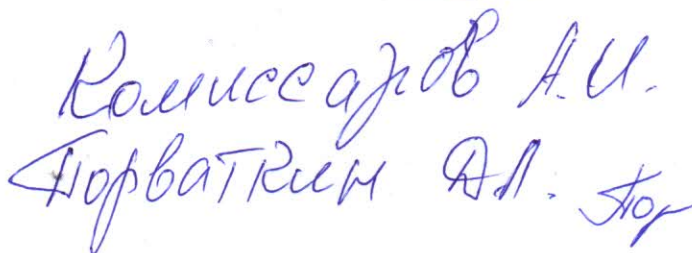 Комиссаров А.И.
Порваткин Д.А. Пор